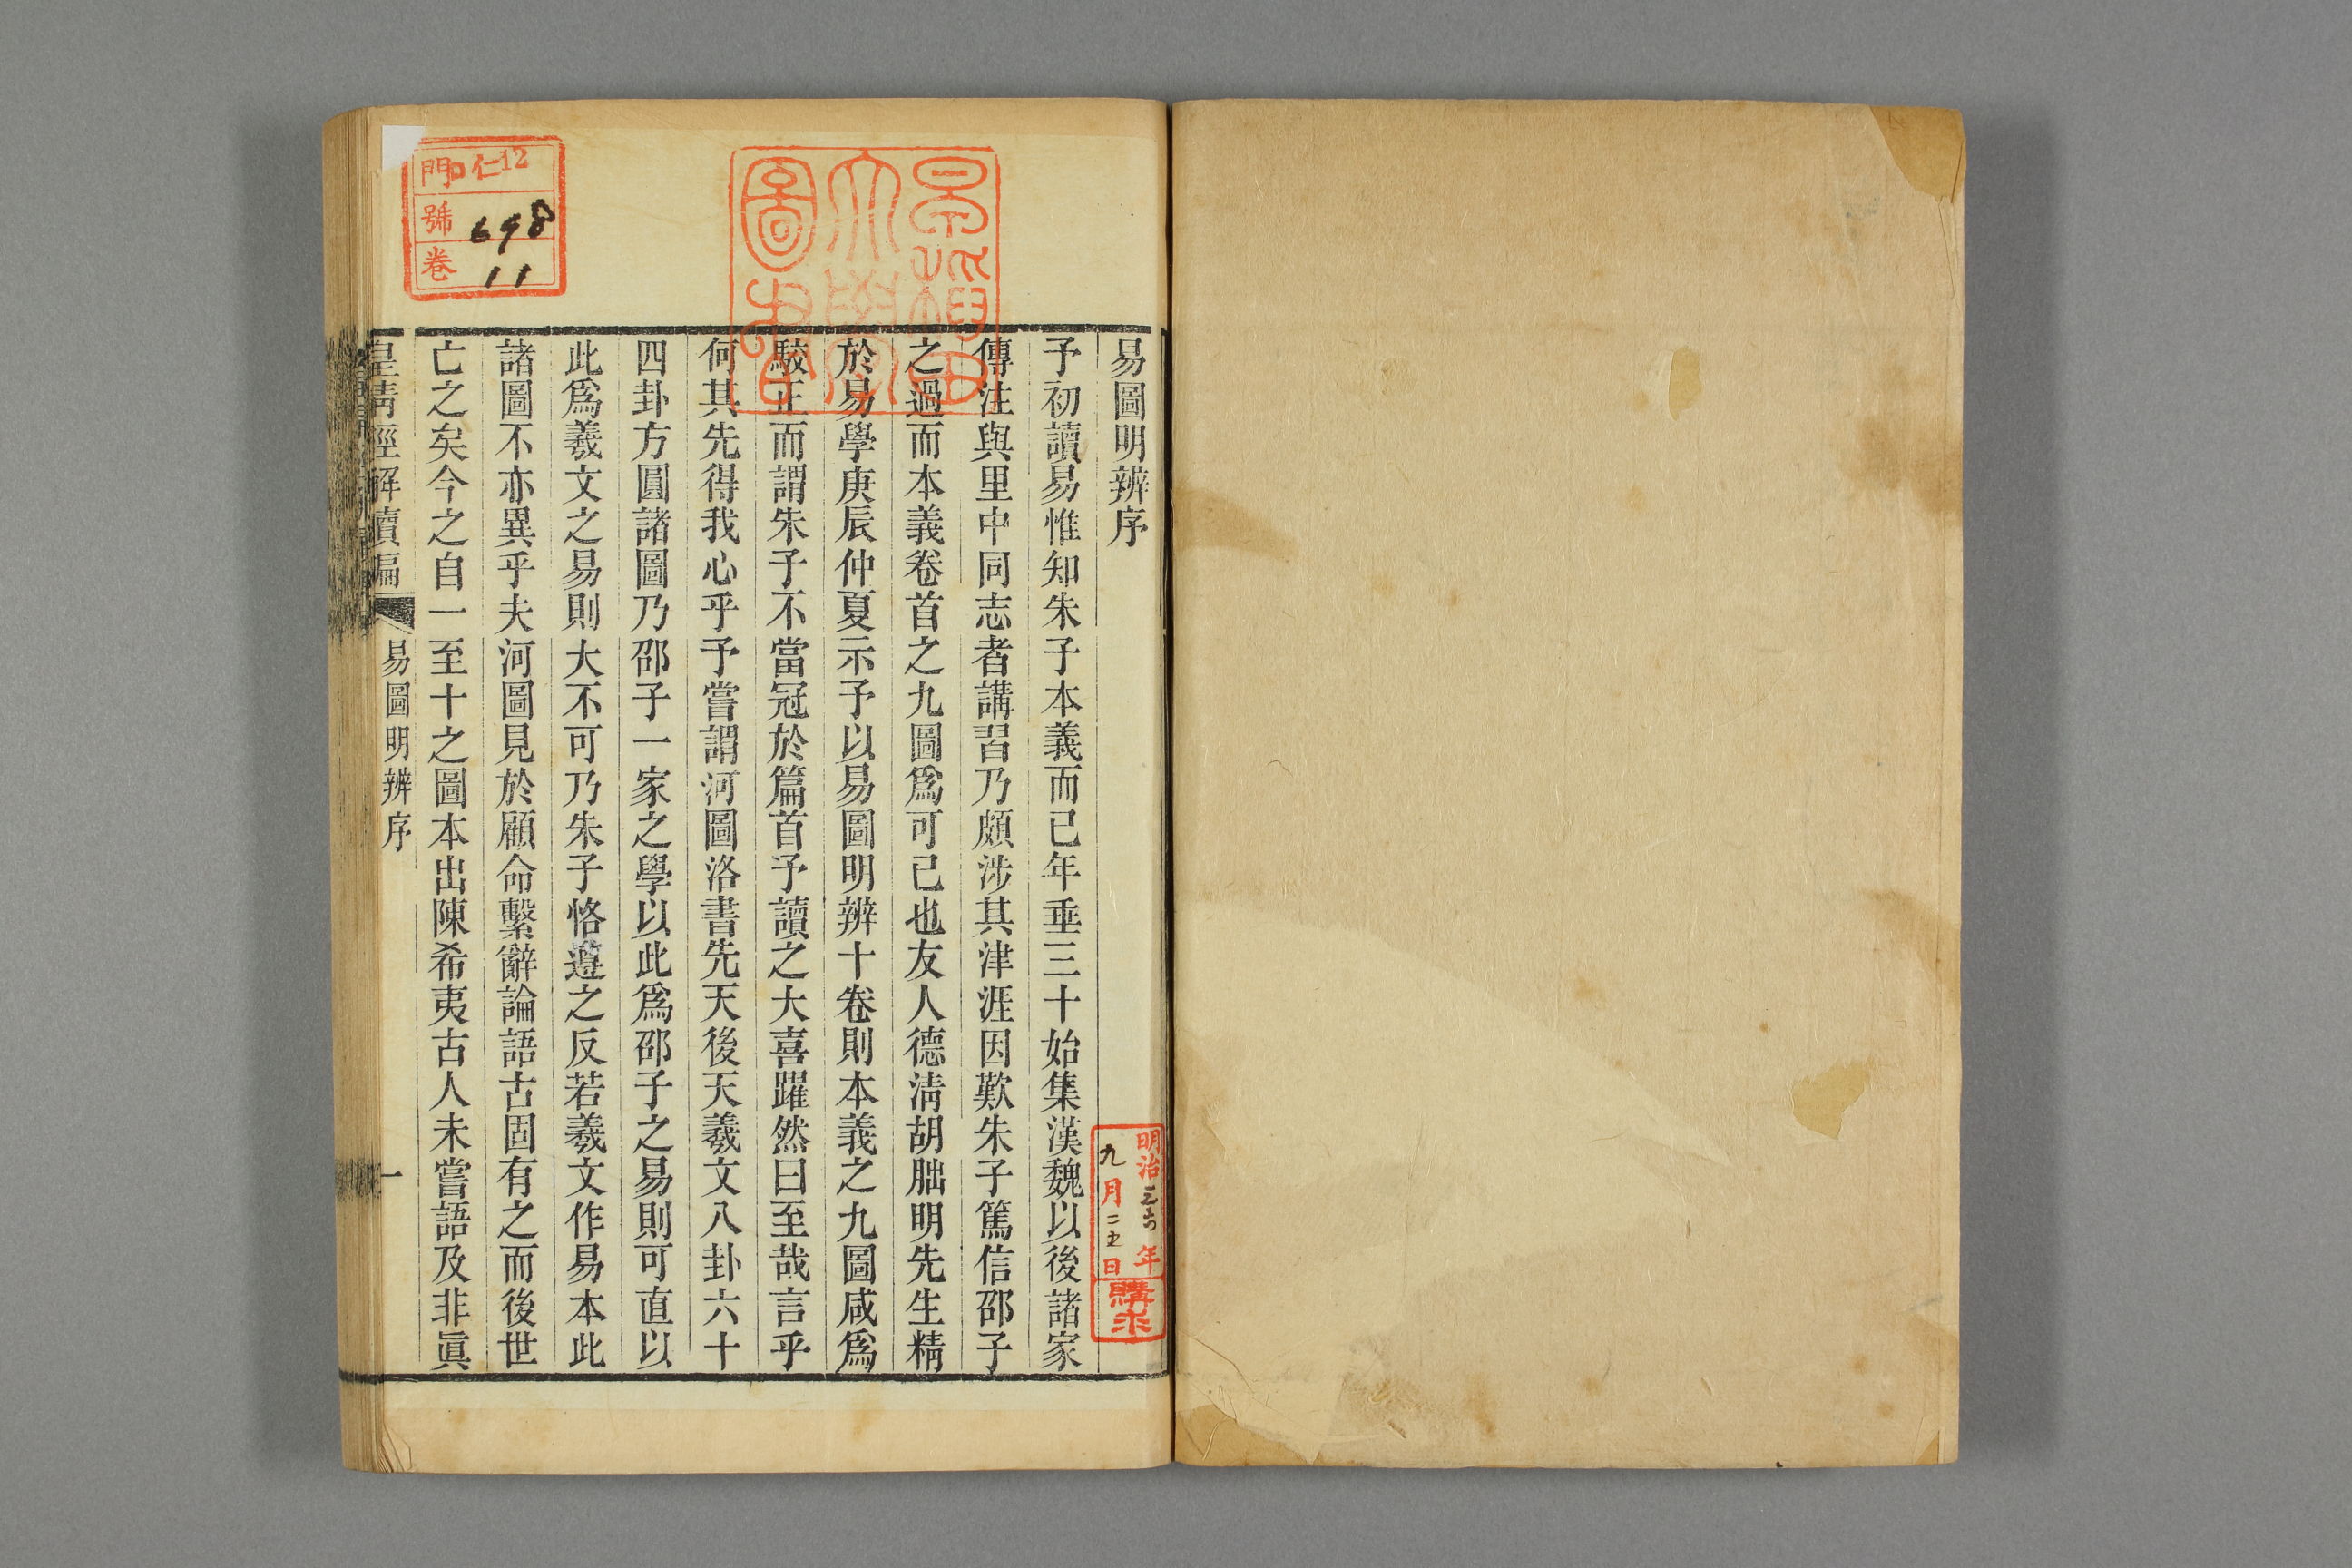 易圖明辨序
予初讀易惟知朱子本義而已年垂三十始集漢魏以後諸家
傳注與里中同志者講習乃頗涉其津涯因歎朱子篤信邵子
之過而本義卷首之九圖爲可已也友人德淸胡朏明先生精
於易學庚辰仲夏示予以易圖明辨十卷則本義之九圖咸爲
駮正而謂朱子不當冠於篇首予讀之大喜躍然曰至哉言乎
何其先得我心乎予嘗謂河圖洛書先天後天羲文八卦六十
四卦方圓諸圖乃邵子一家之學以此爲邵子之易則可直以
此爲羲文之易則大不可乃朱子恪遵之反若羲文作易本此
諸圖不亦異乎夫河圖見於顧命繫辭論語古固有之而後世
亡之矣今之自一至十之圖本出陳希夷古人未嘗語及非眞
皇淸經解續編
易圖明辨序
一
早稲田
大學
圖書
門 仁12
號 698
卷 11
明治三六年
九月二五日
購求